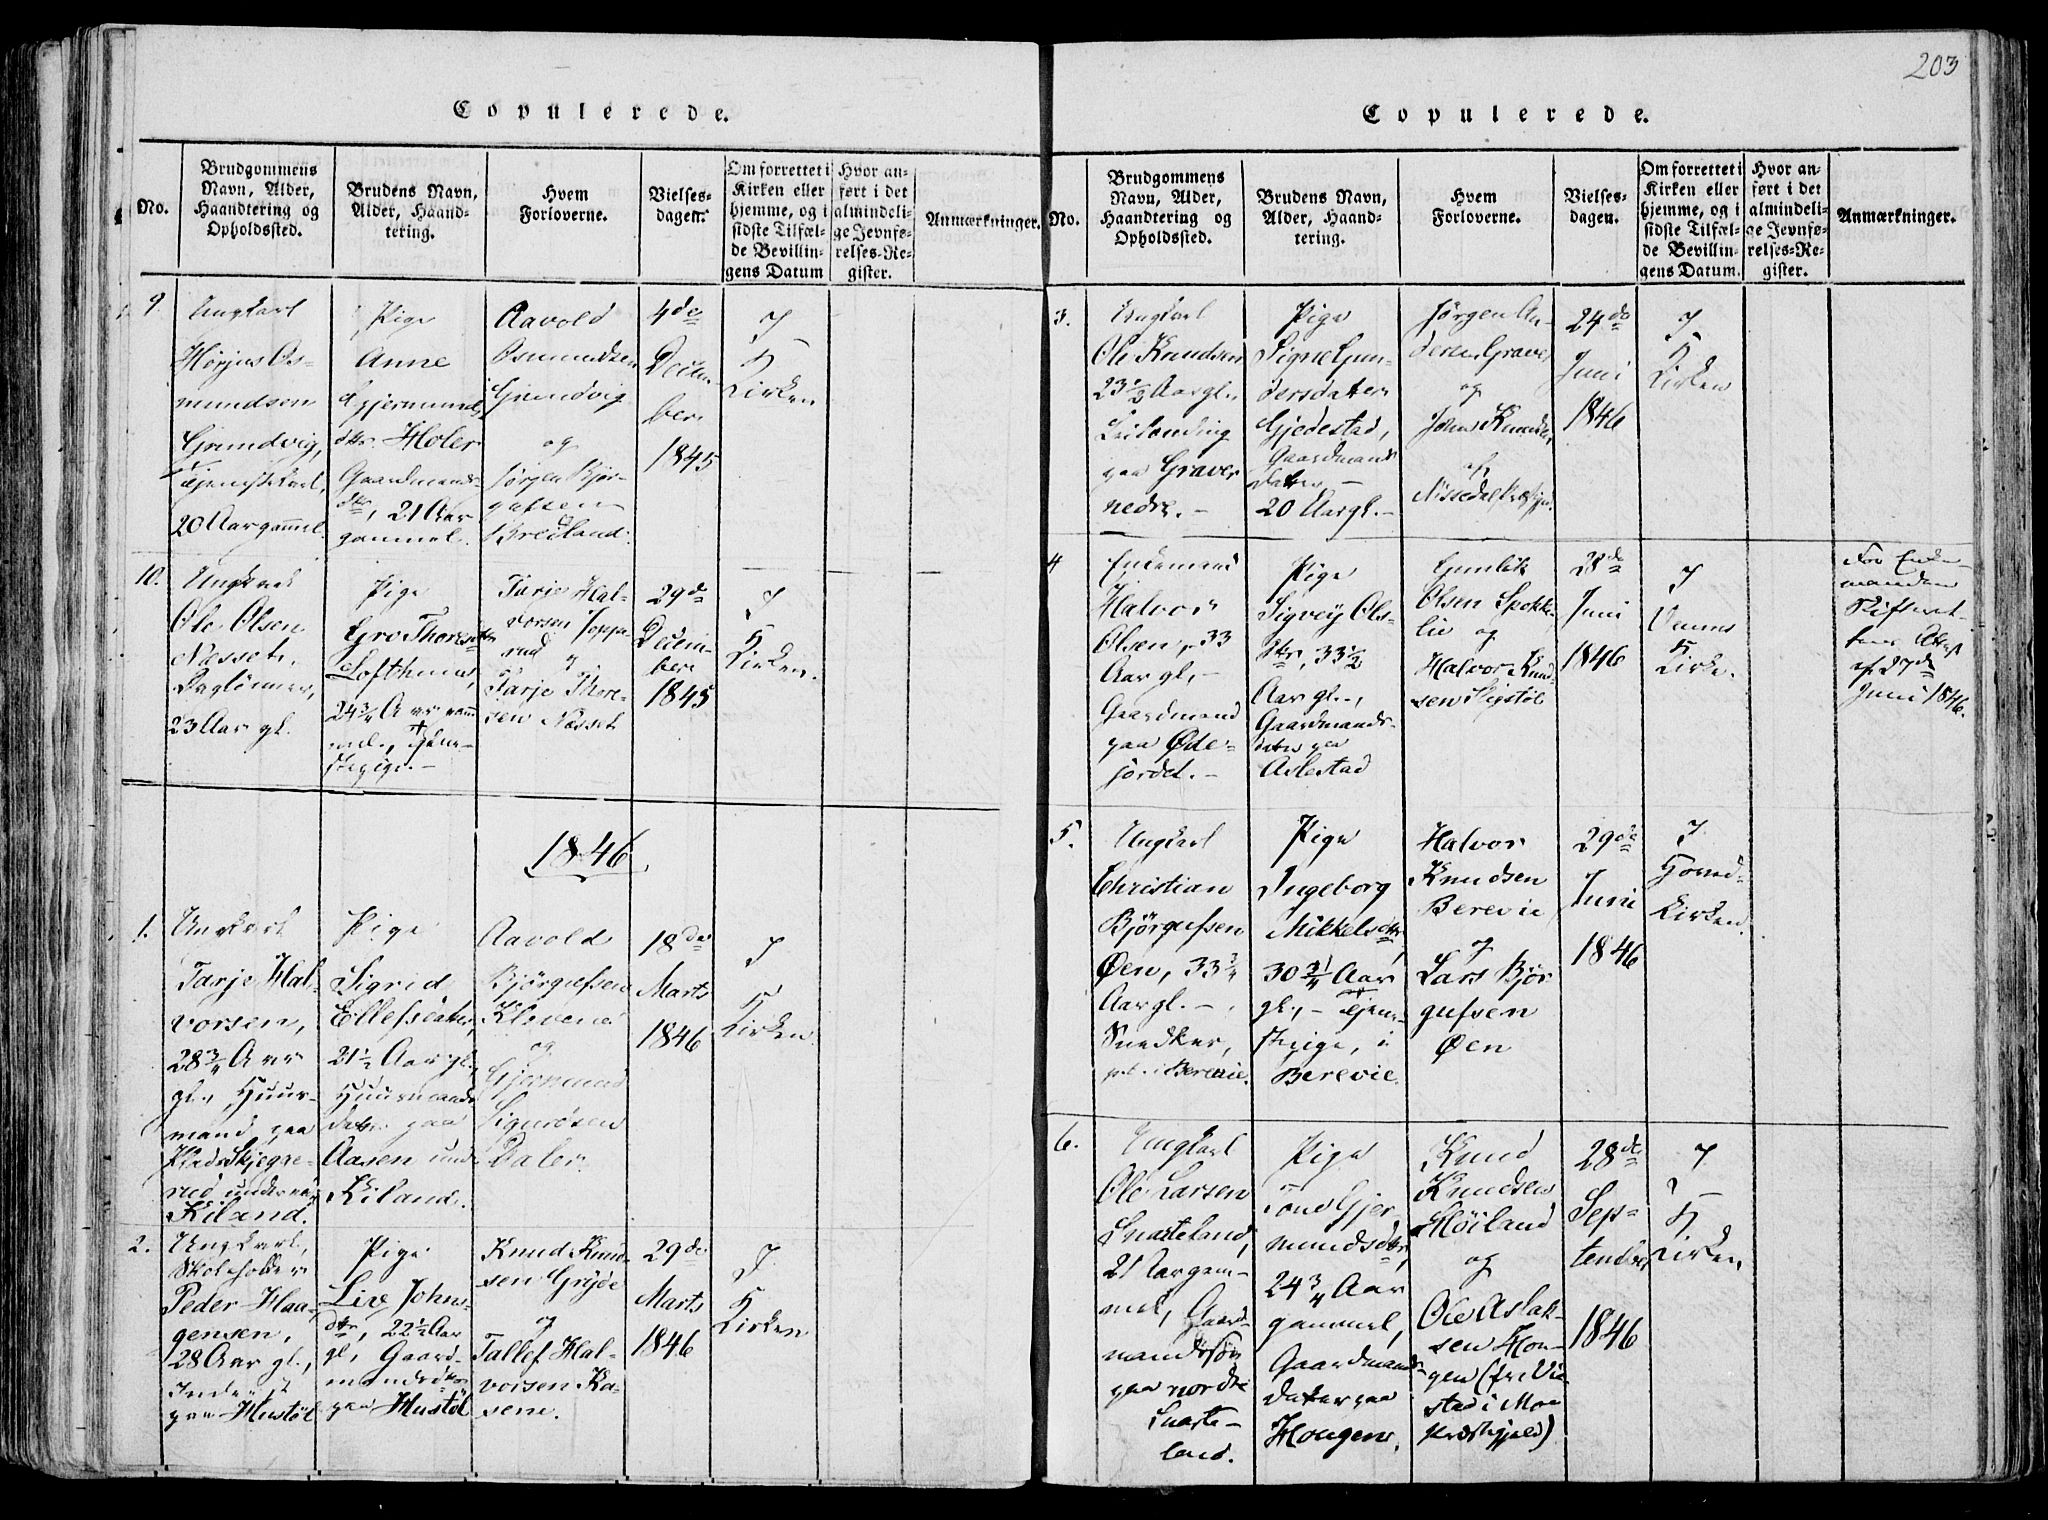 203
Copulerede.
No.
Brudgommens
Navn, Alder,
Haandtering og
Opholdssted.
Brudens Navn,
Alder, Haand-
tering.
Hvem
Forloverne.
Vielses-
dagen.
Om forrettet i
Kirken eller
hjemme, og i
sidste Tilfæl-
de Bevillin-
gens Datum
Hvor an-
ført i det
almindeli-
ge Jevnfø-
relses-Re-
gister.
Anmærkninger.
9.
Ungkarl
Hørjus Os-
mundsen
Grundvig,
Tjenestekarl,
20 Aar gammel.
Pige
Anne
Gjermunds
dtr Holer
Gaardmands
dtr, 21 Aar
gammel.
Aavold
Osmundsen
Grundvig
og
Jørgen Bjør-
gufsen
Breiland.
4de
Decem
ber
1845
I
Kirken
10.
Ungkarl
Ole Olsen
Næsset,
Daglønner,
23 Aar gl.
Pige
Gro Thoresdtr
Lofthuus,
24 3/4 Aar gam
mel, Tjene-
stepige.-
Tarje Hal-
vorsen
rud
og
Tarje Thore-
sen Næsset
29de
Decem-
ber
1845
I
Kirken.
1846.
1.
Ungkarl
Tarje Hal-
vorsen,
28 3/4 Aar
gl., Huus-
mand paa
Skjegge-
rud under
Kiland.
Pige
Sigrid
Ellefsdatter
21 1/2 Aar gl.
Huusmands
datter paa
Aasen under
Kiland.
Aavold
Bjørgufsen
Klevene
og
Gjermund
Sigurdsen
Daler.
18de
Marts
1846
I
Kirken
2.
Ungkarl,
Skoleholder
Peder Haa-
gensen,
28 Aar gl.,
Inderst
paa Hustøl
Pige
Live Johns-
dtr, 22 1/2 Aar
gl. Gaard-
mandsdtr
paa Hustøl
Knud Knud-
sen Gryde
og
Tallef Hal-
vorsen Ka-
sene.
29de
Marts
1846
I
Kirken
Copulerede.
No.
Brudgommens
Navn, Alder,
Haandtering og
Opholdssted.
Brudens Navn,
Alder, Haand-
tering.
Hvem
Forloverne.
Vielses-
dagen.
Om forrettet i
Kirken eller
hjemme, og i
sidste Tilfæl-
de Bevillin-
gens Datum.
Hvor an-
ført i det
almindeli-
ge Jevnfø-
relses-Re-
gister.
Anmærkninger.
3.
Ungkarl
Ole Knudsen
23 1/2 Aar gl.
Leilending
paa Graver
nedre.-
Pige
Signe Gun-
dersdatter
Gjedestad,
Gaardmands
datter -
20 Aar gl.-
Jørgen An-
dersen Graver
og
John Knudsen
af
24de
Juni
1846
I
Kirken
4
Enkemand
Halvor
Olsen, 33
Aar gl,-
Gaardmand
paa Øde-
jordet.-
Pige
Sigvey Ols-
dtr, 33 1/2
Aar gl.,
Gaardmands-
datter paa
Aslestad
Gunlik
Olsen Spokke-
lie og
Halvor Knud-
sen
28de
Juni
1846
I
Vennes
Kirke.
For Enke-
manden
Skifteret-
tens Attest
af 27de
Juni 1846.
5.
Ungkarl
Christian
Bjørgufsen
Øen, 33 3/4
Aar gl.-
Snedker,
i Berevie.
Pige
Ingeborg
Mikkelsdtr
30 1/4 Aar
gl.,- Tjene-
stepige, i
Berevie.
Halvor
Knudsen
Berevie
og
Lars Bjør
gufsen
Øen
29de
Juni
1846
I
Hoved-
Kirken.
6.
Ungkarl
Ole Larsen
Snarteland,
21 Aar gam-
mel, Gaard-
mandssøn
paa nordre
Snarte-
land.
Pige
Tone Gjer
mundsdtr,
24 3/4 Aar
gammel,
Gaardmands-
datter paa
Hougen.
Knud
Knudsen
Høiland
og
Ole Aslak-
sen Hou-
gen
stad i Moe
Præstegjeld)
28de
Sep-
tember
1846
I
Kirken.